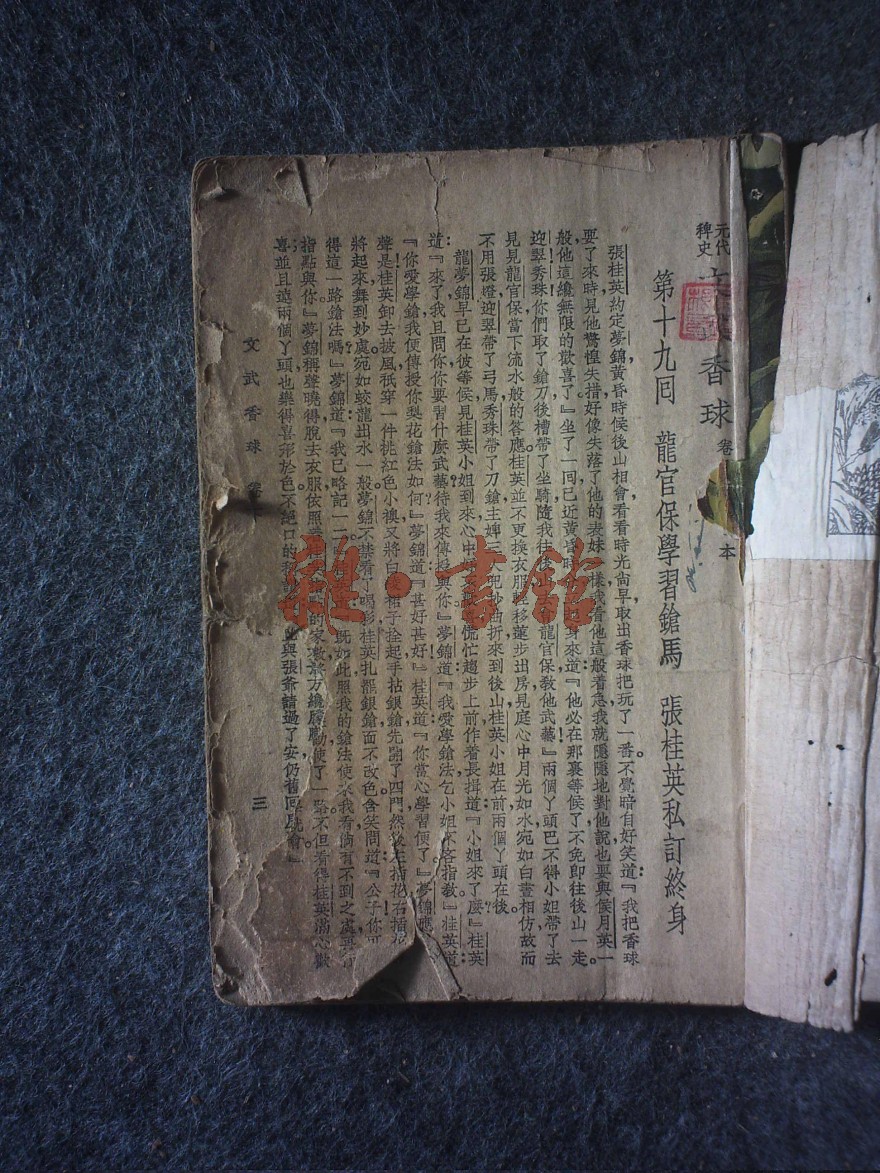 元代
稗史
香球
卷
本
第十九回 龍官保學習鎗馬 張桂英私訂終身
張桂英約定夢錦黃昏時候後山相會看看時光尙早取出香球把玩了一番不覺暗自好笑道『我把香球
要了來時見他驚惶失措好像失落了他的表妹一樣我看他這般着急我就隱隱地對他說也要與侯月英一
般他這纔無限的歡喜了』坐了一回已近黃昏時 身來道『他必在那裏等候了不免即往後山一走。
迎翠秀珠你們取了鎗刀後槽帶了坐騎隨我往後 龍官保教他武藝』兩個丫頭巴不得小姐帶了去
見見龍官保當下流水般的答應桂英並不更換衣服輕移蓮步出房見庭心中月光如水宛如白晝相仿故而
不用張燈迎翠帶了弓馬秀珠帶了刀鎗主婢三 曲折來到後山桂英小姐在前兩個丫頭在後。
龍夢錦早已在彼等候見桂英小姐到來心中 慌忙趨步上前作着長揖道『小姐來了麼』桂英
道『來了我且問你你要習什麼武藝待我來傳授與你』夢錦道『我愛學鎗法乞小姐不吝指教』桂英道
『你愛學鎗我便傳授你梨花鎗法如何』夢錦道『甚好甚好』桂英道『你當心學習便了』夢錦應
聲是桂英卸去披風祇穿一件桃紅色小襖又將白 裙子拴起手拈銀鎗先開了四門然後左插花右插花
將起來舞到妙處宛如蛟龍出水一般夢錦不禁看了喝彩桂英扎罷銀鎗面不改色含笑問道『公子你可
得這一路鎗法嗎』夢錦道『我已略記一二 旣如此照我的鎗法使來我看倘有不到之處
指點與你』夢錦稱聲曉得脫去衣服依照 的家數 使了一路不但看得桂英滿心歡
喜並且連兩個丫頭也樂得喜形於色不絕口的 與張爺請過了安仍舊回
文武香球 卷
三
雜·書館